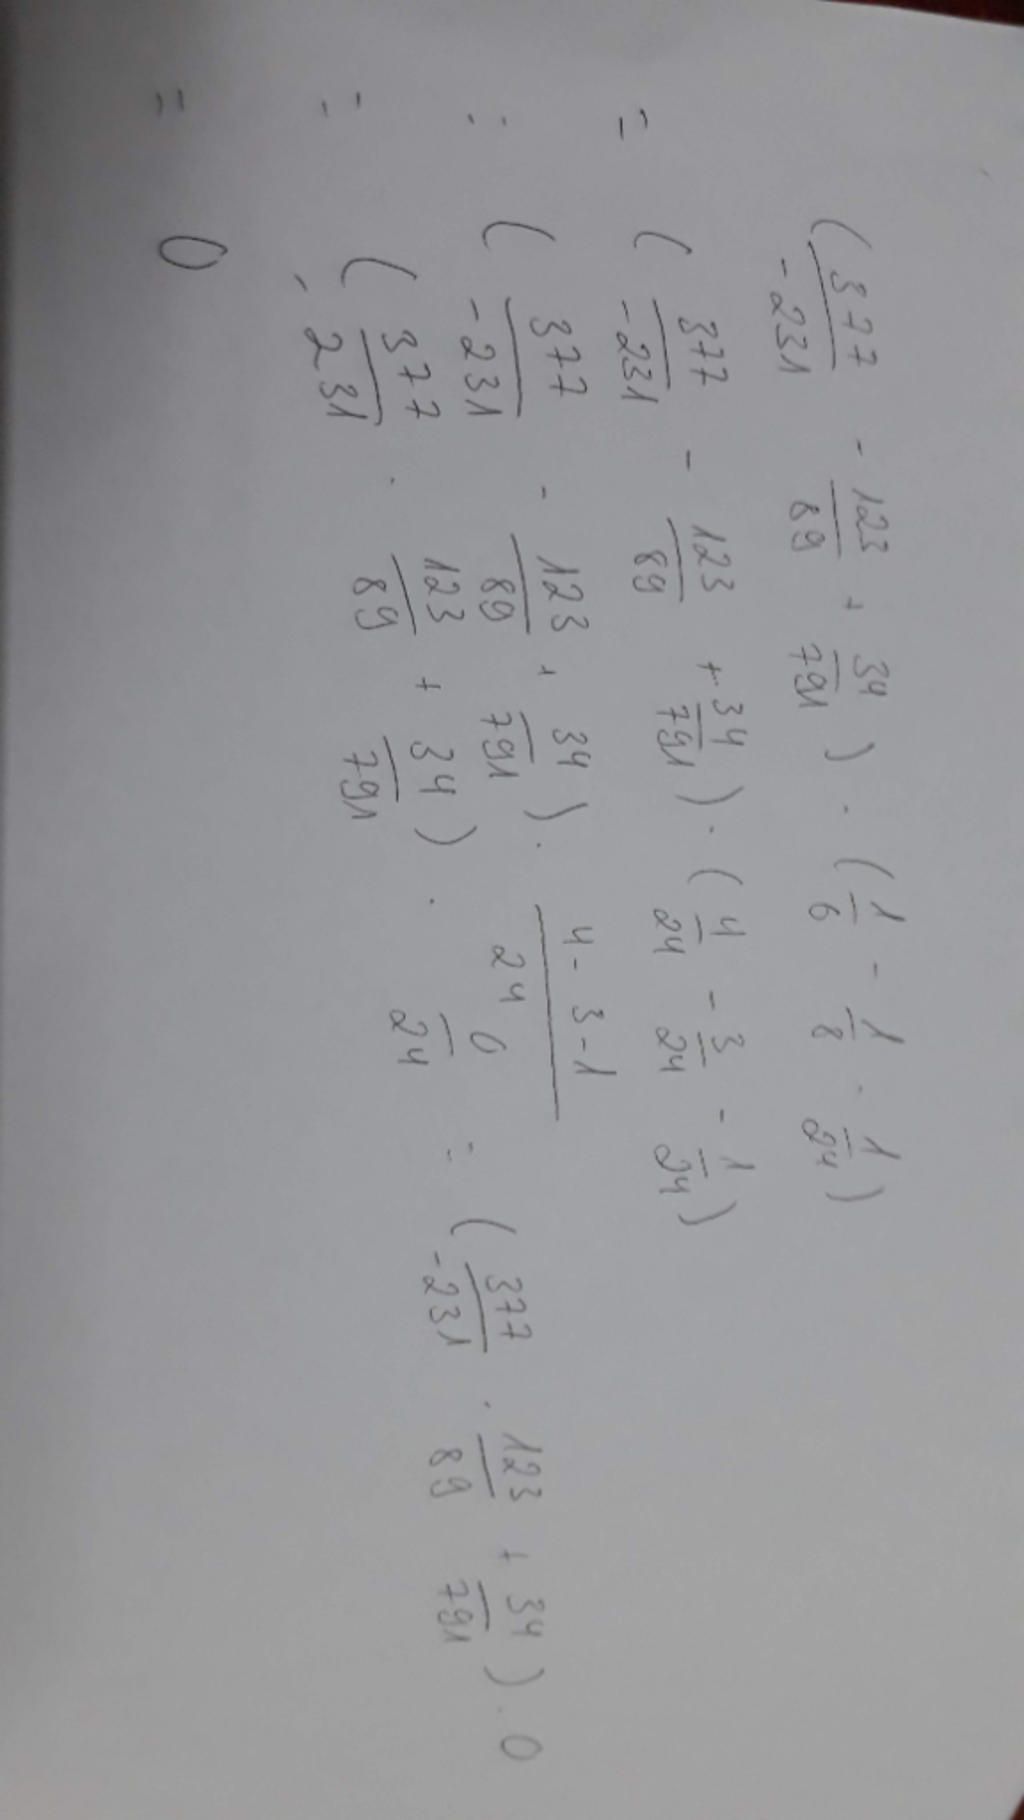 ( 377/-231 - 123/89 + 34/791 ) . ( 1/6 - 1/8 - 1/24 )
= ( 377/-231 - 123/89 + 34/791 ) . ( 4/24 - 3/24 - 1/24 )
= ( 377/-231 - 123/89 + 34/791 ) . 4-3-1/24
= ( 377/-231 - 123/89 + 34/791 ) . 0/24 = ( 377/-231 - 123/89 + 34/791 ) . 0
= 0